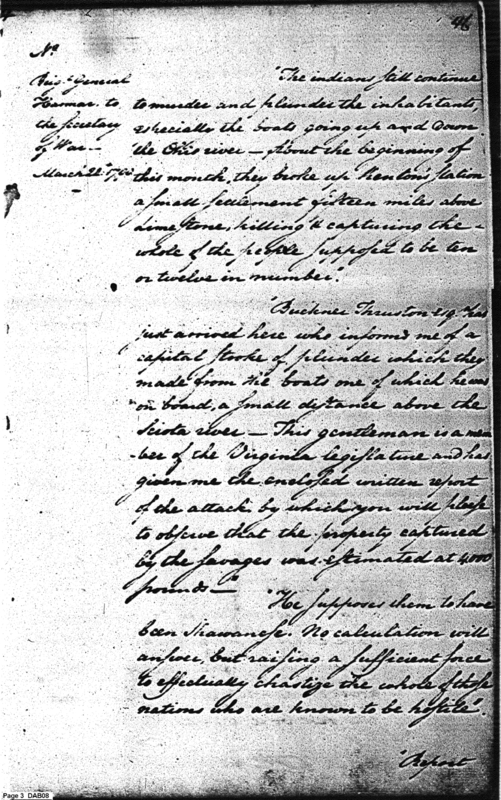 96
No
Brigr General
Harmar to
the Secretary
of War—
March 24 1790
"The indians still continue
to murder and plunder the inhabitants,
especially the boats going up and down
the Ohio river— About the beginning of
this month, they broke up Kenton's station
a small settlement fifteen miles above
Limestone, killing & capturing the
whole of the people supposed to be ten
or twelve in number".
"Buckner Thruston esq. has
just arrived here who informs me of a
capital stroke of plunder which they
made from the boats one of which he was
on board, a small distance above the
Sciota river— This gentleman is a mem
-ber of the Virginia legislature and has
given me the enclosed written report
of the attack by which you will please
to observe that the property captured
by the savages was estimated at 4,000
pounds—"
"He supposes them to have
been Shawanese. No calculation will
answer, but raising a sufficient force
to effectually chastize the whole of those
nations who are known to be hostile".
"Report
Page 3 DAB08